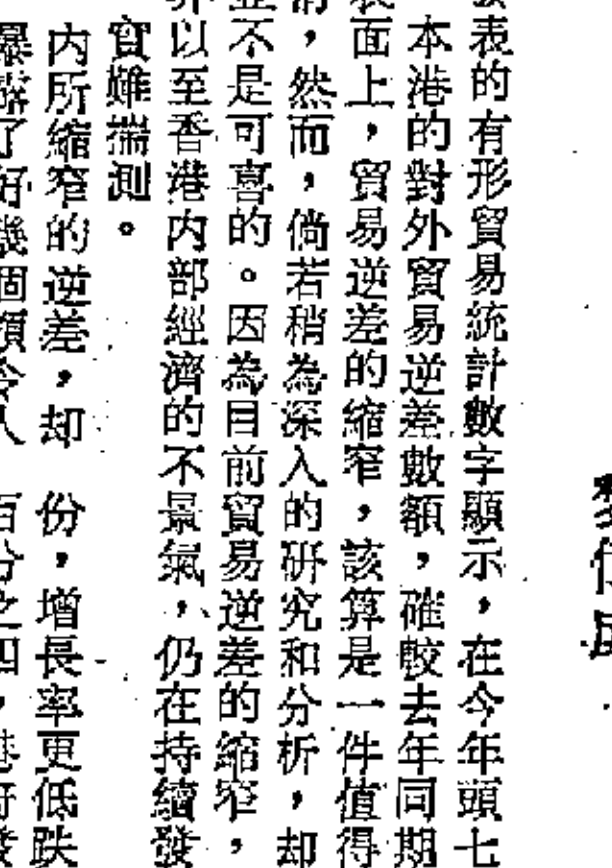 表的有形貿易統計數字顯示，在今年頭七
本港的對外貿易逆差數額，確較去年同期
面上，貿易逆差的縮窄，該算是一件值得
，然而，倘若稍為深入的研究和分析，却
不是可喜的。因為目前貿易逆差的縮窄，
以至香港內部經濟的不景氣，仍在持續發
實難揣測。
內所縮窄的逆差，却
份，增長率更低跌